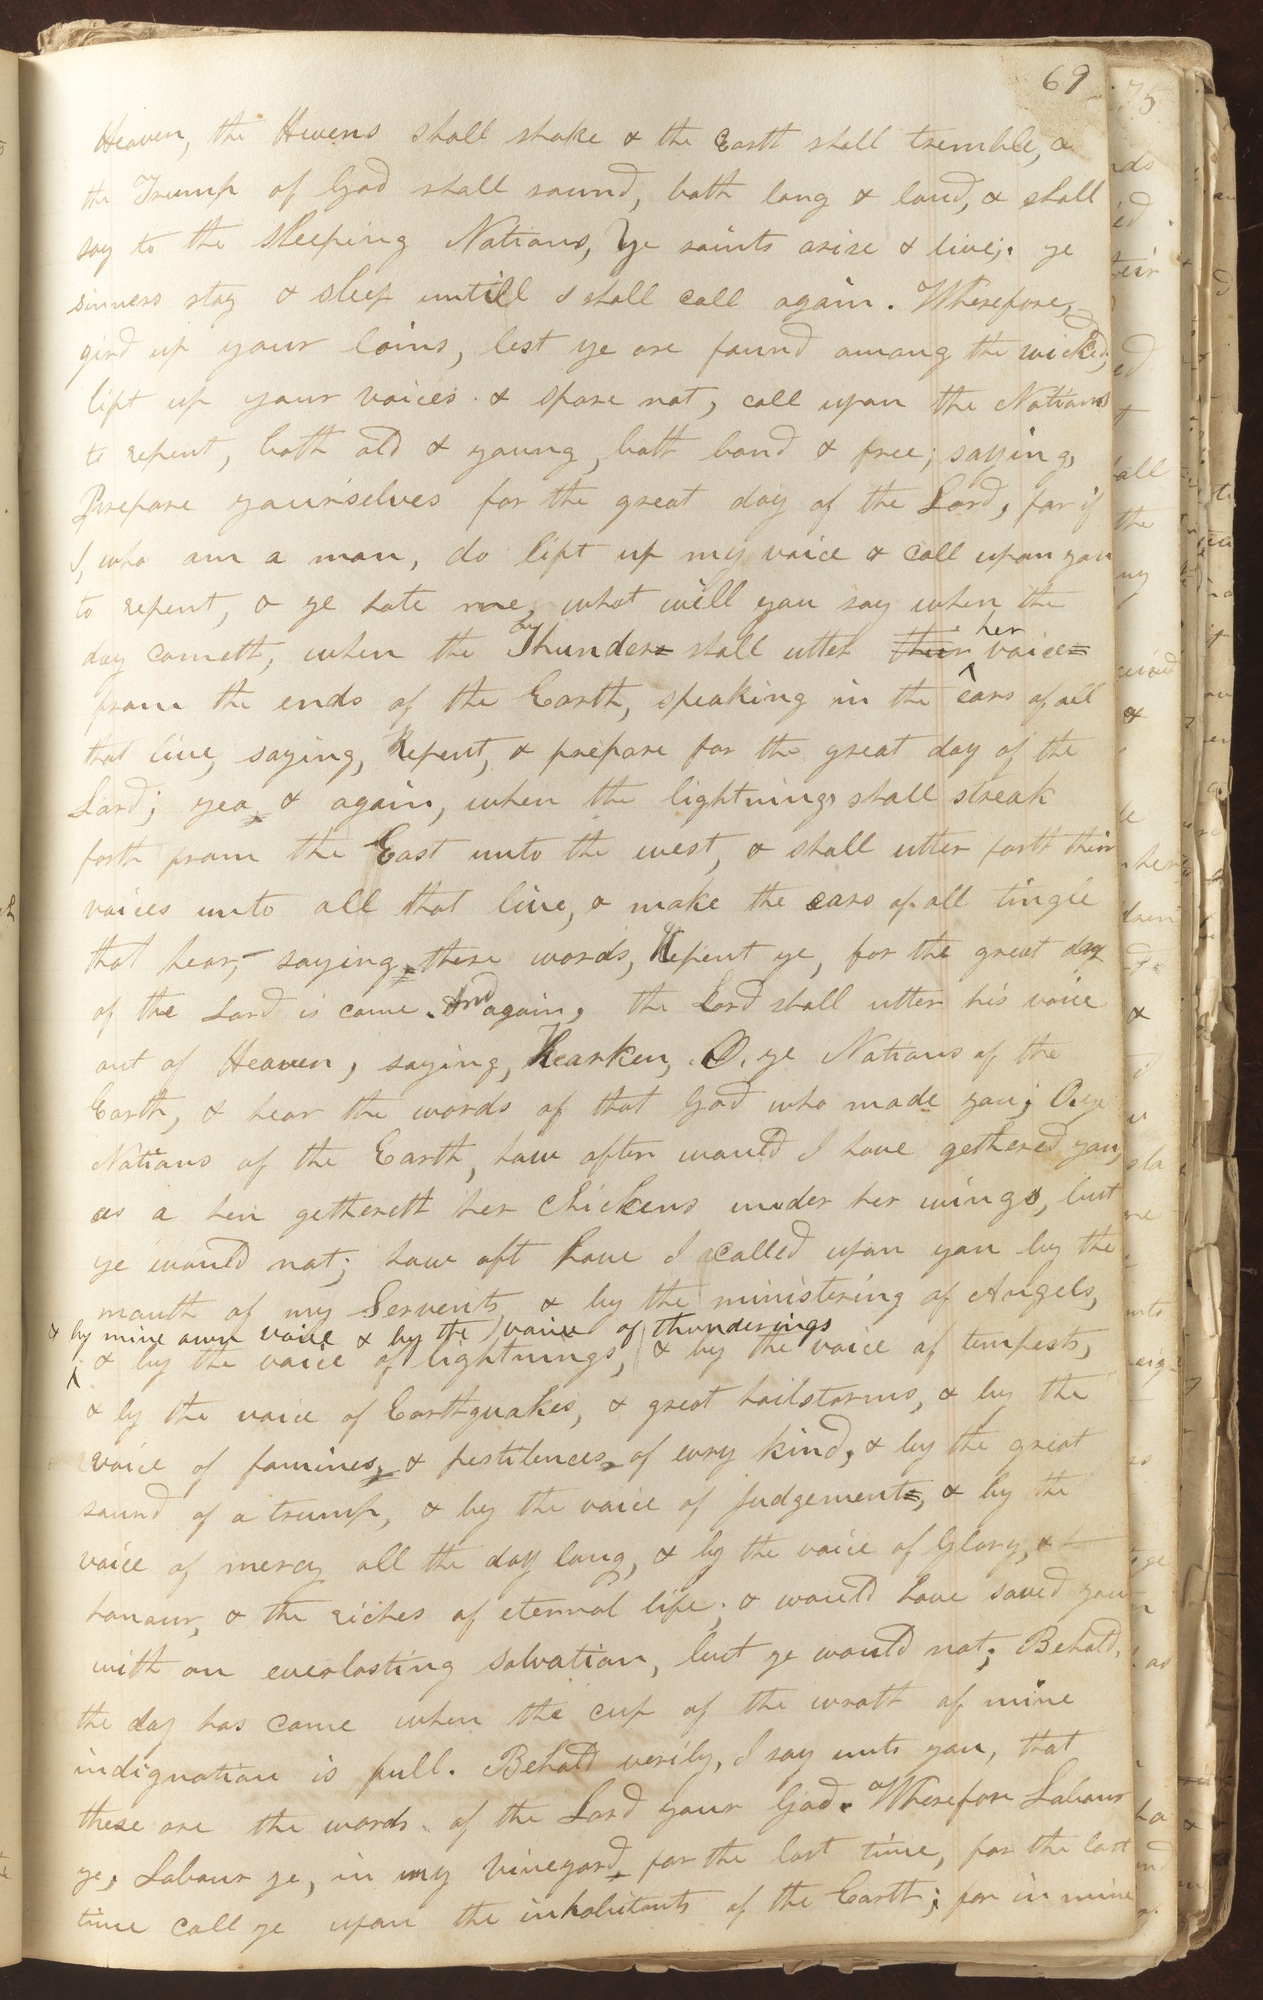 69
Heaven, the Hevens shall shake & the Earth shall tremble, &
the Trump of God shall sound, both long & loud, & shall
say to the sleeping Nations, Ye saints arise & live; ye
sinners stay & sleep untill I shall call again. Wherefore,
gird up your loins, lest ye are found among the wicked;
lift up your voices & spare not, call upon the Nations
to repent, both old & young, both bond & free; saying,
Prepare yourselves for the great day of the Lord, for if
I, who am a man, do lift up my voice & call upon you
to repent, & ye hate me, what will you say when the
her
day cometh, when the Thunders shall utter their voices
from the ends of the Earth, speaking in the ears of all
that live, saying, Repent, & prepare for the great day of the
Lord; yea, & again, when the lightnings shall streak
forth from the East unto the west, & shall utter forth their
voices unto all that live, & make the ears of all tingle
that hear, saying, these words, Repent ye, for the great day
of the Lord is come. And again, the Lord shall utter his voice
out of Heaven, saying, Hearken, O, ye Nations of the
Earth, & hear the words of that God who made you; O, ye
Nations of the Earth, how often would I have gethered you,
as a hen gethereth her chickens under her wings, but
ye would not; how oft have I called upon you by the
mouth of my Servents, & by the ministering of Angels,
& by mine own voice & by the voice of thunderings
& by the voice of lightnings, & by the voice of tempests,
& by the voice of Earthquakes, & great hailstorms, & by the
voice of famines, & pestilences, of evry kind, & by the great
sound of a trump, & by the voice of Judgements, & by the
voice of mercy all the day long, & by the voice of Glory, &
honour, & the riches of eternal life, & would have saved you
with an everlasting salvation, but ye would not; Behold,
the day has come when the cup of the wrath of mine
indignation is full. Behold verily, I say unto you, that
these are the words of the Lord your God. Wherefore Labour
ye, Labour ye, in my vineyard, for the last time, for the last
time call ye upon the inhabitants of the Earth; for in mine